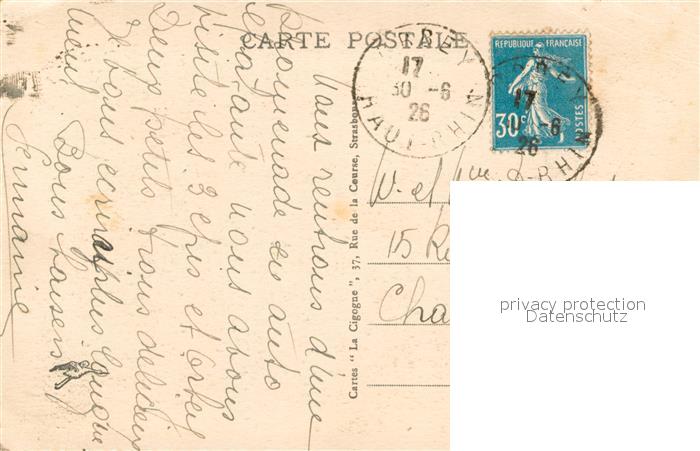 CARTE POSTALE
REPUBLIQUE FRANÇAISE
30c
POSTES
17
30 -6
26
HAUT-RHIN
17
-6
26
-RHIN
Cartes "La Cigogne", 37, Rue de la Course, Strasbourg
Nous rentrons d'une
Promenade en auto
épatante nous avons
Visité les 3 Epis et Orbey
Deux petits trous délicieux
Je vous écrirai plus longue
Bons baisers
Germaine
15 R
Cha
privacy protection
Datenschutz